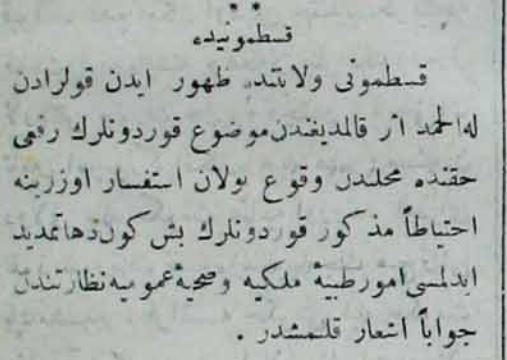 قسطمونیده
قسطمونی ولایتنده ظهور ایدن قولرادن
لهالحمد اثر قالمدیغندن موضوع قوردونلرك رفعی
حقنده محلندن وقوع بولان استفسار اوزرینه
احتیاطاً مذكور قوردونلرك بش كون دها تمدید
ایدلمسی امور طبیۀ ملكیه و صحیۀ عمومیه نظارتندن
جواباً اشعار قلنمشدر .